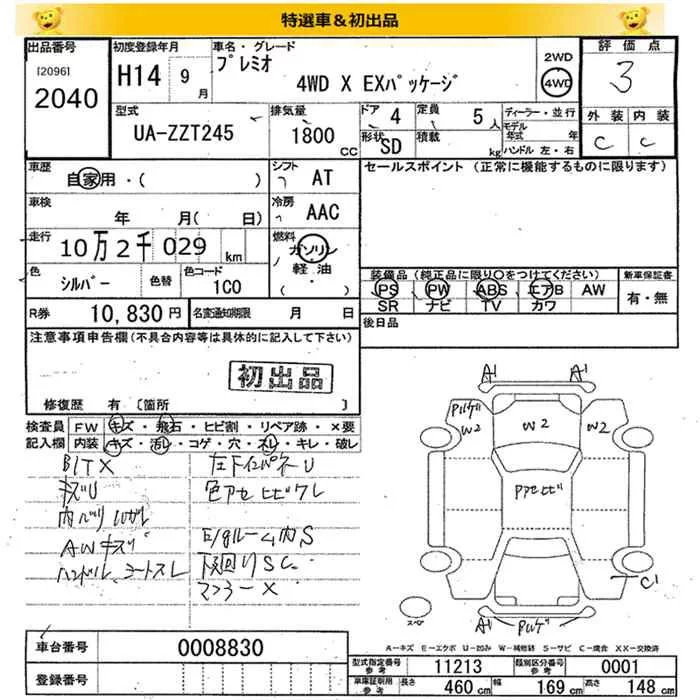 特選車＆初出品
出品番号 初度登録年月 車名・グレード 2WD 評価点
[2096] プレミオ
2040 H14 9月 4WD X EXパッケージ 4WD 3
型式 排気量 ドア 4 定員 5人 ディーラー・並行 外装 内装
UA-ZZT245 1800 CC 形状 SD 積載 kg モデル年式 年 ハンドル 左・右 C C
車歴 シフト セールスポイント（正常に機能するものに限ります）
自家用・( ) AT
車検 冷房
年 月( 日) AAC
走行 燃料
10万2千029 km ガソリン
色 色替 色コード 軽油
シルバー 1C0 ( ・ )
装備品（純正品に限り○をつけてください） 新車保証書
PS PW ABS エアB AW 有・無
SR ナビ TV カワ
R券 10,830円 名変通知期限 月 日 後日品
注意事項申告欄(不具合内容等は具体的に記入して下さい)
初出品
修復歴 有〔箇所 〕
検査員 FW キズ・飛石・ヒビ割・リペア跡・×要
記入欄 内装 キズ・汚レ・コゲ・穴・スレ・キレ・破レ
BITX
キズU
AWキズ
色アセ ヒビワレ
E/gルーム内S
下回りSC
マフラーX
A1 A1
W2 W2 W2
C1
A1
スペア
A－キズ E－エクボ U－凹み W－補修跡 S－サビ C－腐食 XX－交換済
車台番号 0008830
登録番号
型式指定番号 参考 11213 類別区分番号 参考 0001
車庫証明用 参考 長さ 460cm 幅 169cm 高さ 148cm